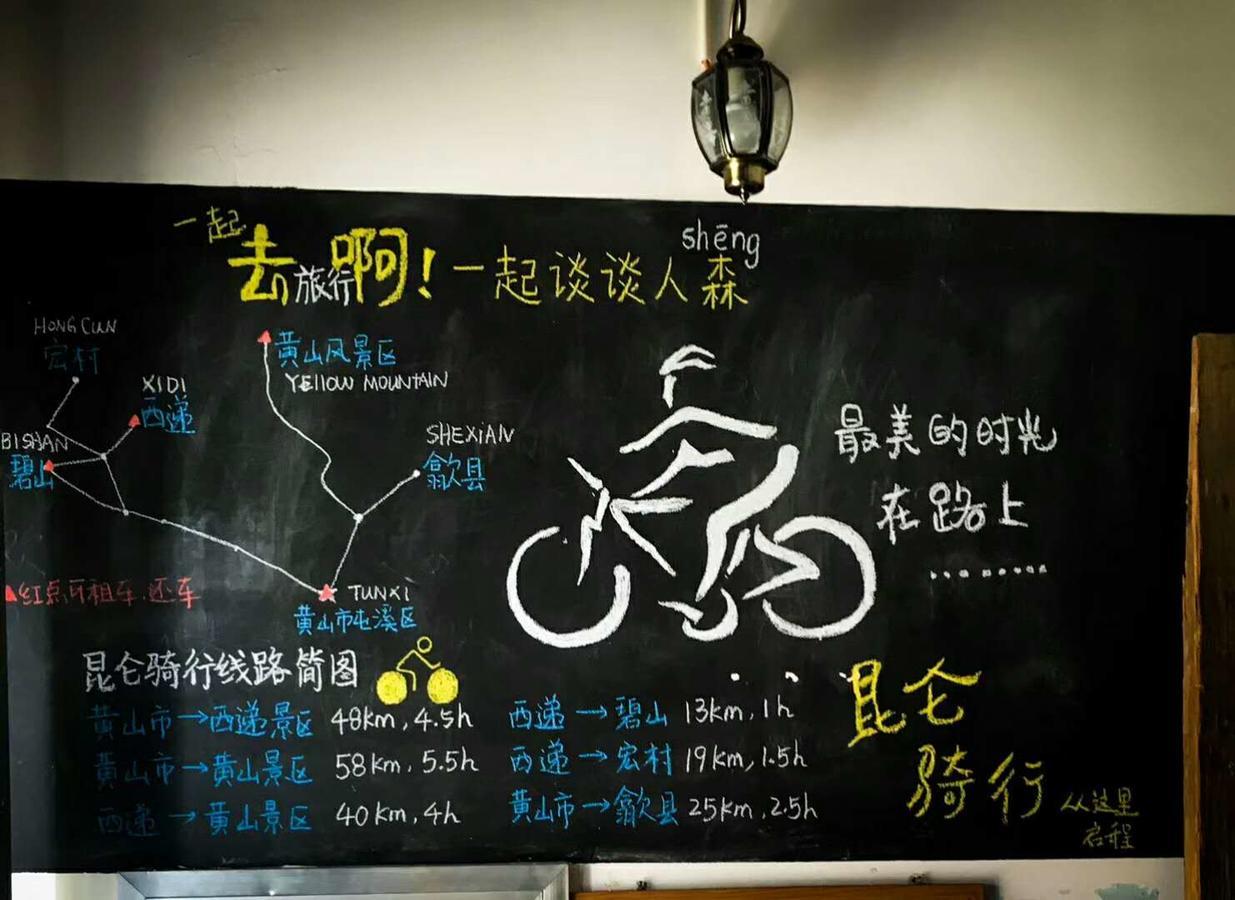 一起去旅行啊！一起谈谈人森
shēng
HONGCUN
宏村
XIDI
西递
BISHAN
碧山
黄山风景区
YEllOW MOUNTAIN
SHEXiAN
歙县
TUNXi
黄山市屯溪区
红点可租车.还车
最美的时光
在路上
.........
昆仑骑行线路简图
黄山市→西递景区 48km,4.5h
黄山市→黄山景区 58km,5.5h
西递→黄山景区 40km,4h
西递→碧山 13km,1h
西递→宏村 19km,1.5h
黄山市→歙县 25km,2.5h
昆仑
骑行 从这里
启程